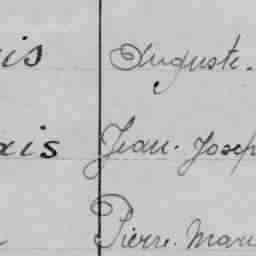 is Auguste.
ais Jean. Josep
Pierre. Mari